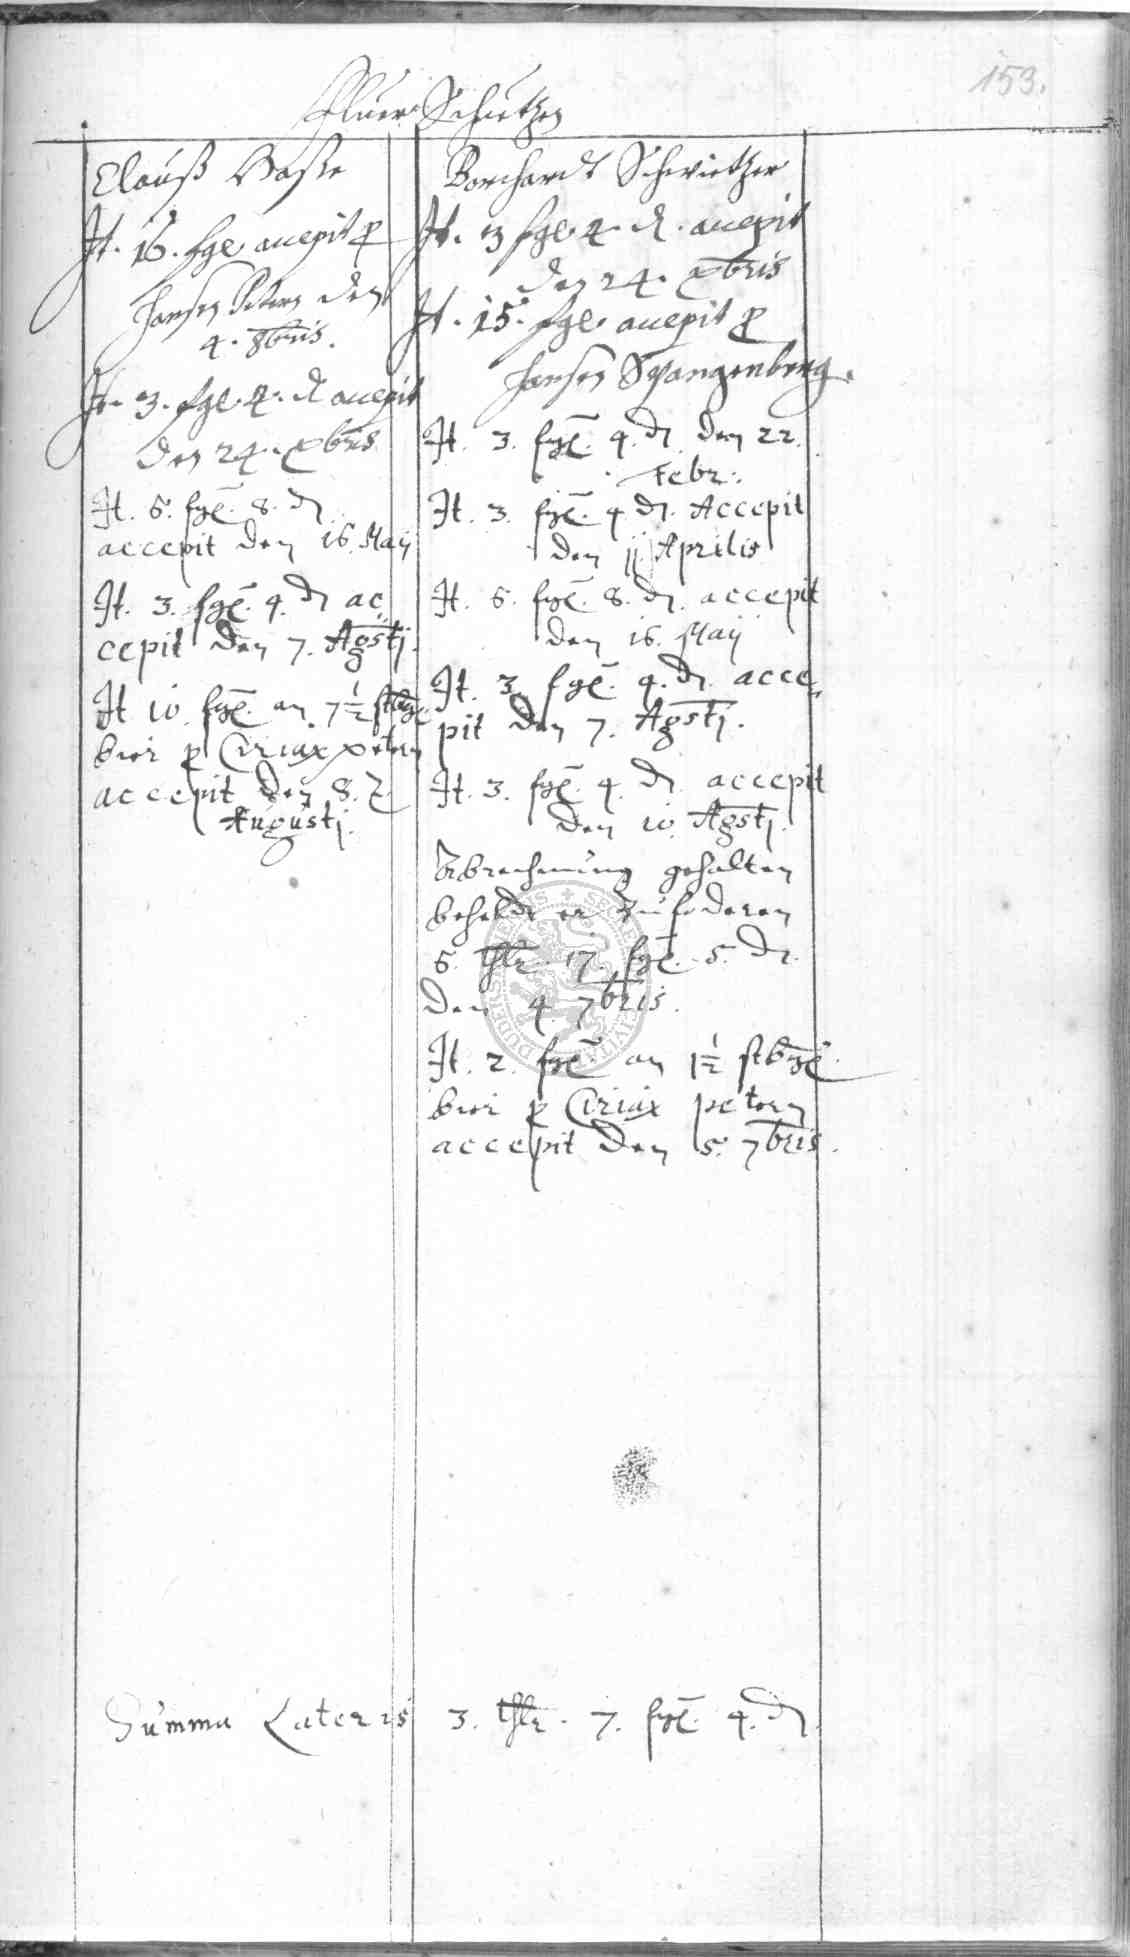 153.
Fluer Schuetzen
Clauß Vasse
It. 16. sgl. accepit p
Hansen Peters den
4. 8bris.
It. 3. sgl. 4. d accepit
den 24. xbris
It. 6. sgl. 8. d
accepit den 16. Maij
It. 3. sgl. 4. d ac
cepit den 7. Agstj.
It 10. sgl. an 7 1/2 stbgl
bier p Ciriax petern
accepit den 8.
Augustj.
Borchardt Schwietzer
It. 3 sgl. 4. d. accepit
den 24. xbris
It. 15. sgl. accepit p
Hansen Spangenberg.
It. 3. sgl. 4. d. den 22.
Febr.
It. 3. sgl. 4 d. Accepit
den 11. Aprilis
It. 6. sgl. 8. d. accepit
den 16. Maij
It. 3. sgl. 4. d. acce
pit den 7. Agstj.
It. 3. sgl. 4. d. accepit
den 10. Agstj.
Abrechnung gehalten
behelt er zu foderen
6. thlr. 17. sgl. 5. d.
den 4. 7bris.
It. 2. sgl. an 1 1/2 stbgl
bier p Ciriax petern
accepit den 5. 7bris.
Summa Lateris 3. thlr. 7. sgl. 4. d.